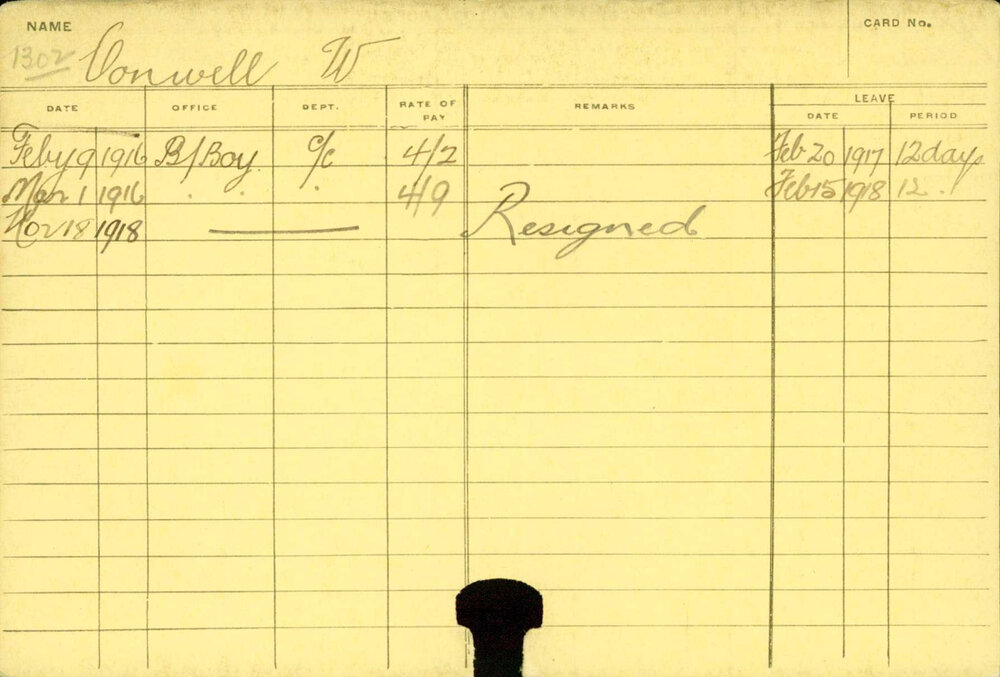 NAME
CARD No.
1302 Conwell W
DATE OFFICE DEPT. RATE OF PAY REMARKS LEAVE
DATE PERIOD
Feby 9 1916 B/Boy. C/C 4/2 Feb 20 1917 12 days
Mar 1 1916 . . . 4/9 Feb 15 1918 12 .
Nov 18 1918 Resigned